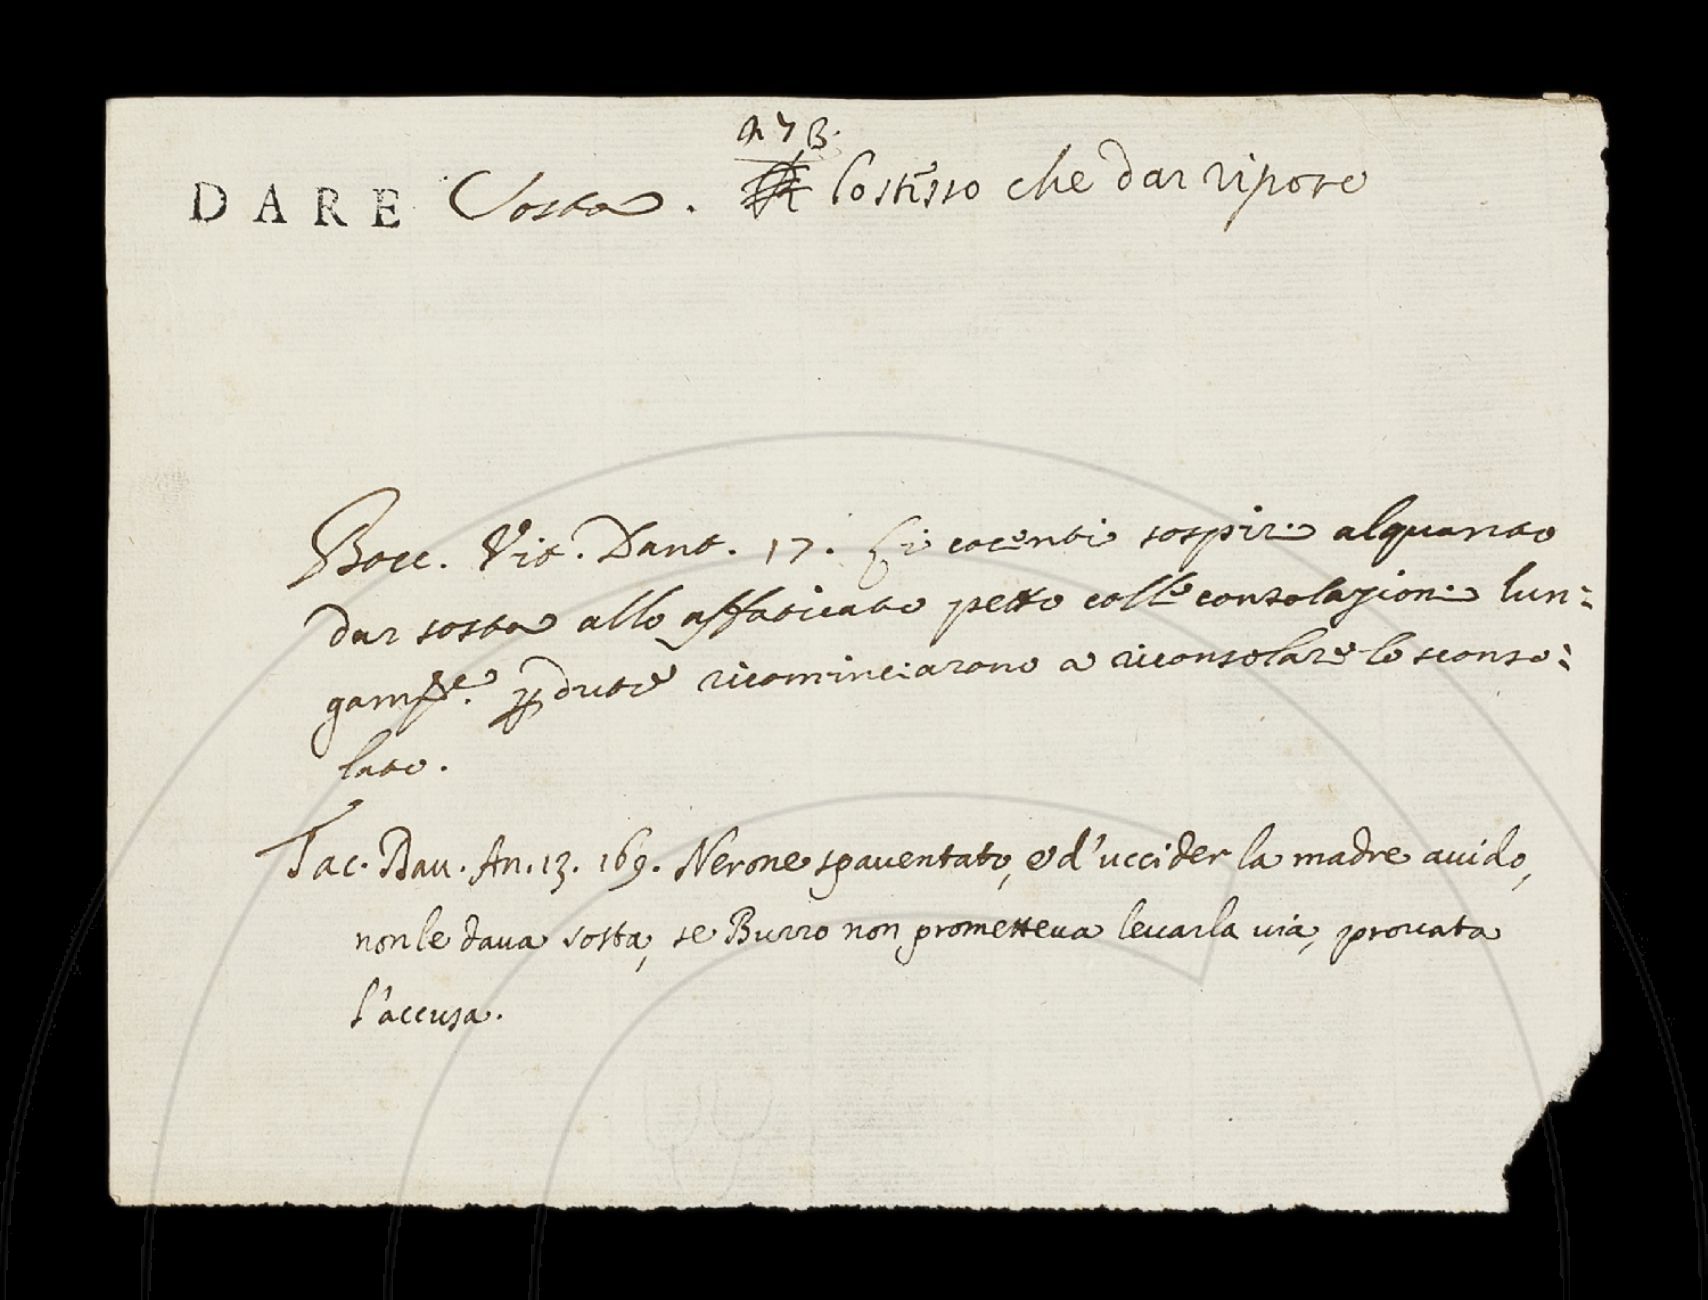 n 7 B.
DARE Sosta. Lo stesso che dar riposo
Bocc. Vit. Dant. 17. E i cocenti sospiri alquanto
dar sosta allo affaticato petto colle consolazioni lun:
gam.te perdute ricominciarono a riconsolare lo sconso:
lato.
Tac. Dav. An. 13. 169. Nerone spaventato, e d'uccider la madre auido,
non le daua sosta, se Burro non prometteua leuarla uia, prouata
l'accusa.